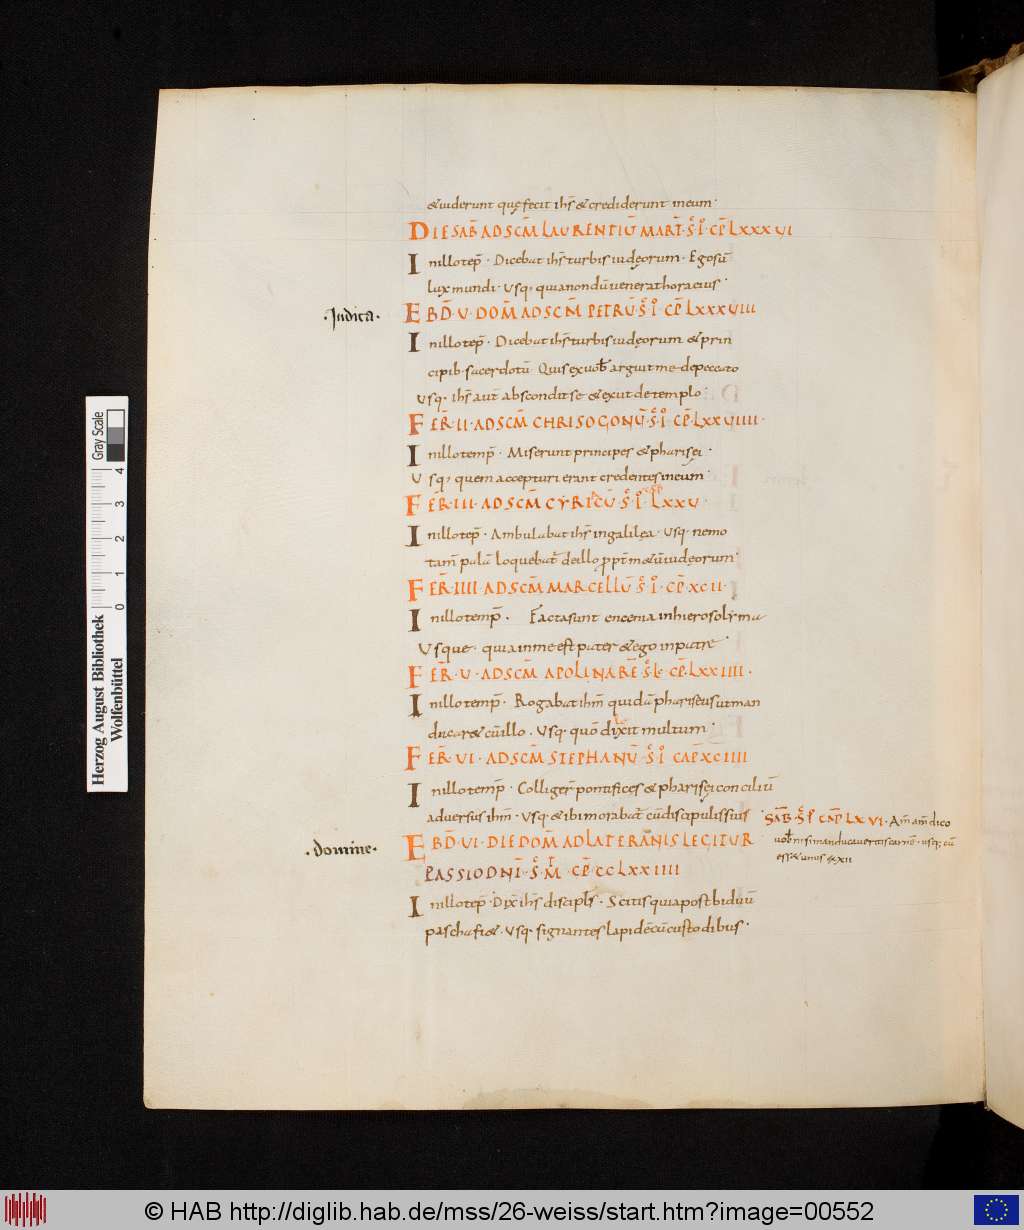 &uiderunt quę fecit ihs̄ & crediderunt ineum·
DIE SAB̄ AD SC̄M LAURENTIŪ MART̄· S̄· IO̅· CP̄ LXXXVI
Inillotep̄· Dicebat ihs̄ turbis iudęorum· Ego sū
lux mundi· Usq· quia nondū uenerat hora eius·
·Judica·
EBD̄· V· DOM̄ AD SC̄M PETRŪ S̄ IO̅· CP̄ LXXXVIII
Inillotep̄· Dicebat ihs̄ turbis iudęorum & prin
cipib· sacerdotū· Quis ex uob̄ arguit me de peccato
Usq· ihs̄ aut̄ abscondit se & exiit de templo·
FER̄· II· AD SC̄M CHRISOGONŪ· S̄· IO̅· CP̄· LXXVIIII·
Inillotemp̄· Miserunt principes & pharisęi·
Usq· quem accepturi erant credentes ineum·
FER̄· III· AD SC̄M CYRICŪ S̄· IO̅ LXXV·
Inillotep̄· Ambulabat ihs̄ in galilęa· Usq· nemo
tam̄ palā loquebat̄ de illo ppt̄ m&ū iudęorum·
FER̄· IIII· AD SC̄M MARCELLŪ S̄ IO̅· CP̄· XCII·
Inillotemp̄· Facta sunt encenia in hierosolyma
Usque· quia in me est pater & ego in patre·
FER̄· V· AD SC̄M APOLINARĒ S̄· L· CP̄· LXXIIII·
Inillotemp̄· Rogabat ihm̄ quidā phariseus ut man
ducar& cū illo· Usq· quō dixit multum·
FER̄ VI· AD SC̄M STEPHANŪ· S̄ IO̅ CAP̄ XCIIII
Inillotemp̄· Colliger̄ pontifices & pharisęi conciliū
aduersus ihm̄· Usq· & ibi morabat̄ cū discipulis suis
·SAB̄· S̄· IO̅ CAP̄ LXVI· Am̄ am̄ dico
uob̄ nisi manducaueritis carnē· usq; cū
ess& unus ex XII
·domine·
EBD̄· VI· DIE DOM̄ AD LATERANIS LEGITUR
PASSIO DN̄I· S̄· M̄· CP̄· CCLXXIIII
Inillotep̄· Dix̄ ihs̄ discipls̄· Scitis quia post biduū
pascha fi&· Usq· signantes lapidē cū custodibus·
Herzog August Bibliothek
Wolfenbüttel
0 1 2 3 4
Gray Scale
© HAB http://diglib.hab.de/mss/26-weiss/start.htm?image=00552